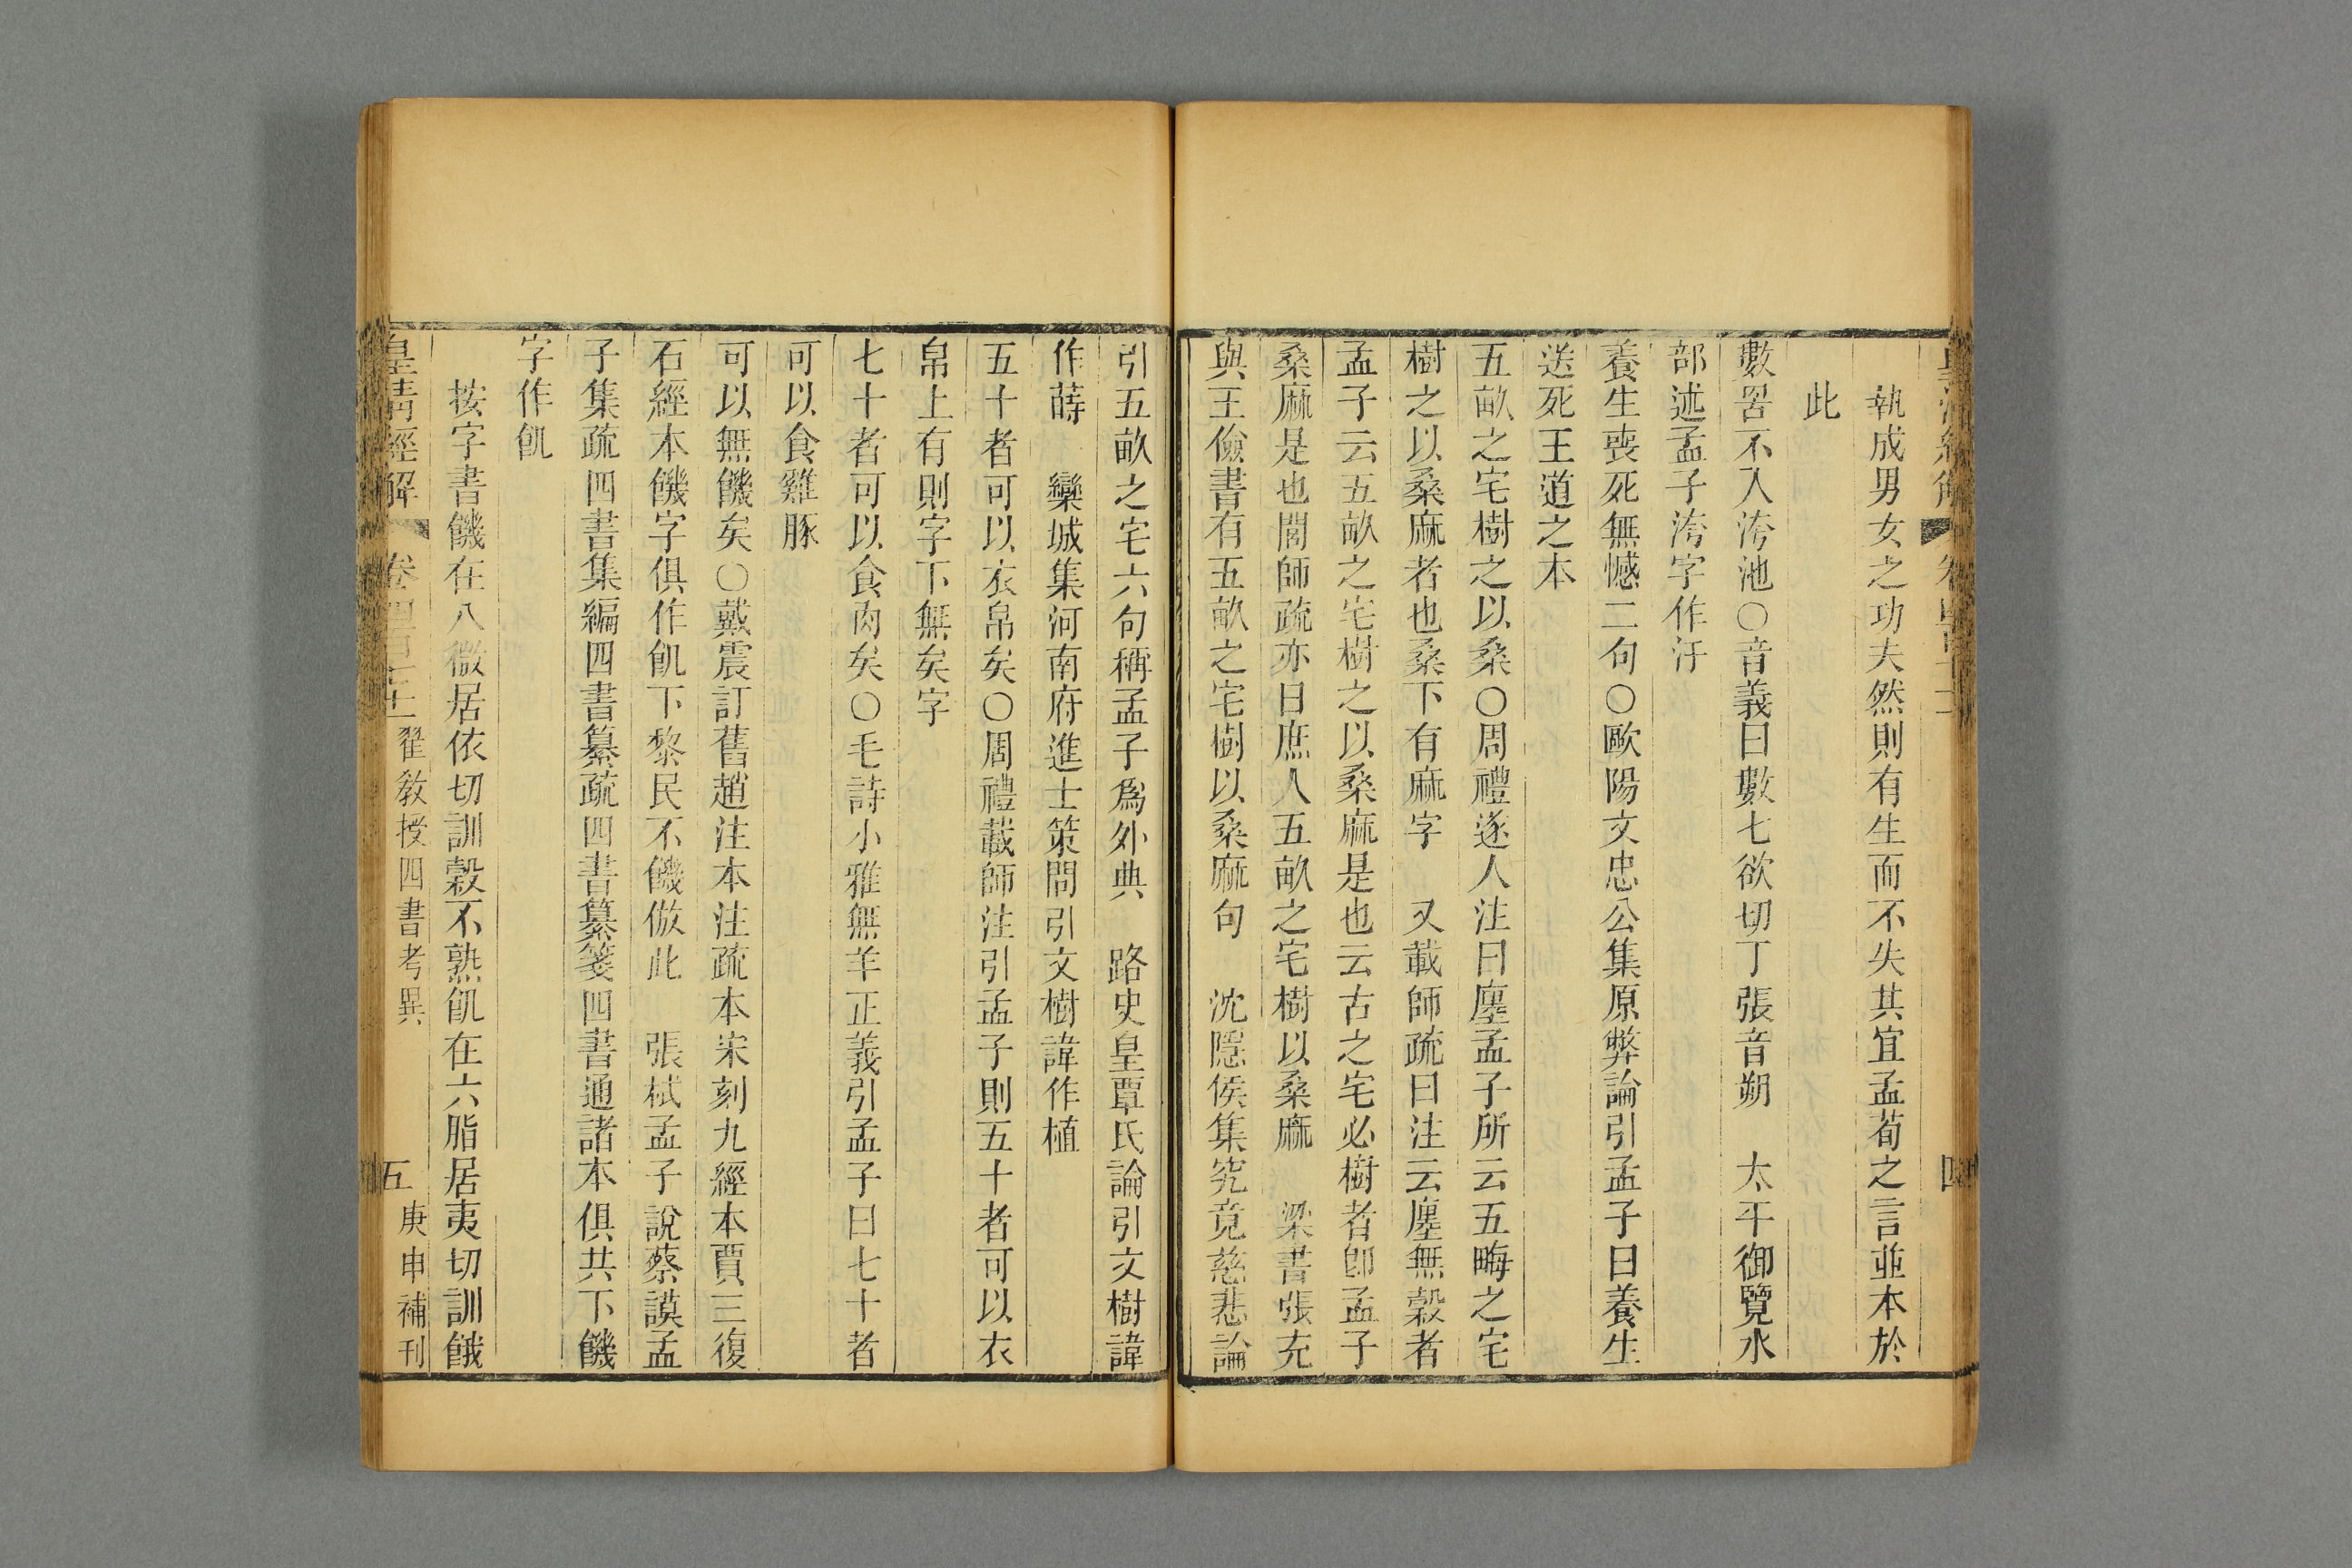 執成男女之功夫然則有生而不失其宜孟荀之言並本於
此
數罟不入洿池○音義曰數七欲切丁張音朔　太平御覽水
部述孟子洿字作汙
養生喪死無憾二句○歐陽文忠公集原弊論引孟子曰養生
送死王道之本
五畝之宅樹之以桑○周禮遂人注曰廛孟子所云五畮之宅
樹之以桑麻者也桑下有麻字　又載師疏曰注云廛無穀者
孟子云五畝之宅樹之以桑麻是也云古之宅必樹者卽孟子
桑麻是也閭師疏亦曰庶人五畝之宅樹以桑麻　梁書張充
與王儉書有五畝之宅樹以桑麻句　沈隱侯集究竟慈悲論
引五畝之宅六句稱孟子爲外典　路史皇覃氏論引文樹諱
作蒔　欒城集河南府進士策問引文樹諱作植
五十者可以衣帛矣○周禮載師注引孟子則五十者可以衣
帛上有則字下無矣字
七十者可以食肉矣○毛詩小雅無羊正義引孟子曰七十者
可以食雞豚
可以無饑矣○戴震訂舊趙注本注疏本宋刻九經本賈三復
石經本饑字俱作飢下黎民不饑倣此　張栻孟子說蔡謨孟
子集疏四書集編四書纂疏四書纂箋四書通諸本俱共下饑
字作飢
按字書饑在八微居依切訓穀不熟飢在六脂居夷切訓餓
皇清經解　卷四百　翟敎授四書考異　五　庚申補刊